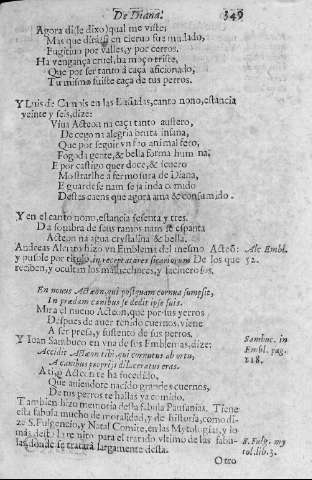 De Diana. 349
Agora di (le dixo) qual me viste:
Mas que diràs si en cieruo fue mudado,
Fugitiuo por valles, y por cerros.
Ha vengança cruel, ha moço triste,
Que por ser tanto à caça aficionado,
Tu mismo fuiste caça de tus perros.
Y Luis de Camoẽs en las Luſiadas, canto nono, estancia
veynte y seis, dize:
Viua Acteon na caça tanto austero,
De cego na alegria bruta insana,
Que por seguir vn feo animal fero,
Foge da gente, & bella forma humana;
E por castigo quer doce, & seuero
Mostrarlhe a fermosura de Diana,
E guardese nam seja inda comido
Destes caens que agora ama & consumido.
Y en el canto nono, estancia sesenta y tres.
Da sombra de seus ramos nam se espanta
Acteon na agua crystalina & bella.
Andreas Alciato hizo vn Emblema del mesmo Acteõ: Alc Embl.
y pusole por titulo, in receptatores sicariorum De los que 52.
reciben, y ocultan los malhechores, y facinerosos.
En nouus Actæon, qui postquam cornua sumpsit,
In prædam canibus se dedit ipse suis.
Mira el nueuo Acteon, que por sus yerros
Despues de auer tenido cuernos, viene
A ser presa, y sustento de sus perros.
Y Ioan Sambuco en vna de sus Emblemas, dize: Sambuc. in
Accidit Actæon tibi, qui cornutus ab ortu, Embl. pag.
A canibus proprijs dilaceratus eras. 128.
A ti, o Acteon te ha sucedido,
Que auiendote nacido grandes cuernos,
De tus perros te hallas ya comido.
Tambien hizo memoria desta fabula Pausanias. Tiene
esta fabula mucho de moralidad, y de historia, como di-
ze S. Fulgencio, y Natal Comite, en las Mytologias, y lo
mas desto la remito para el tratado vltimo de las fabu- S. Fulg. my
las, donde se tratarà largamente della. tol. lib. 3.
Otro